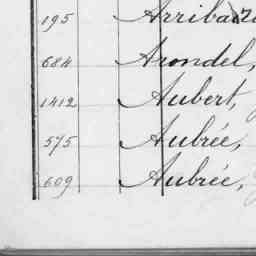 195 Arriba
684 Arondel,
1412 Aubert,
575 Aubrée,
609 Aubrée,